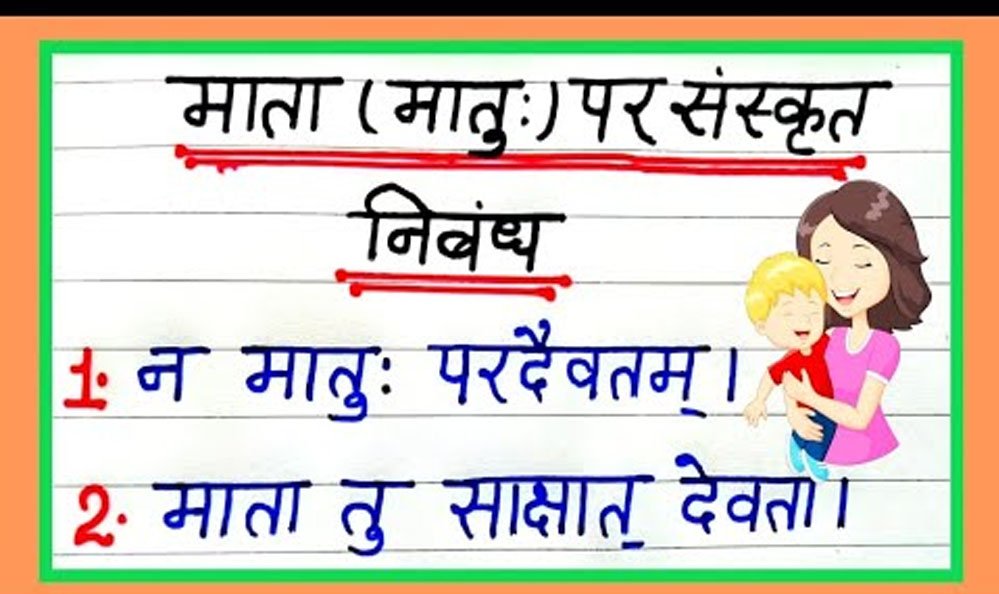 माता (मातुः) पर संस्कृत
निबंध
1. न मातुः परदैवतम्।
2. माता तु साक्षात् देवता।